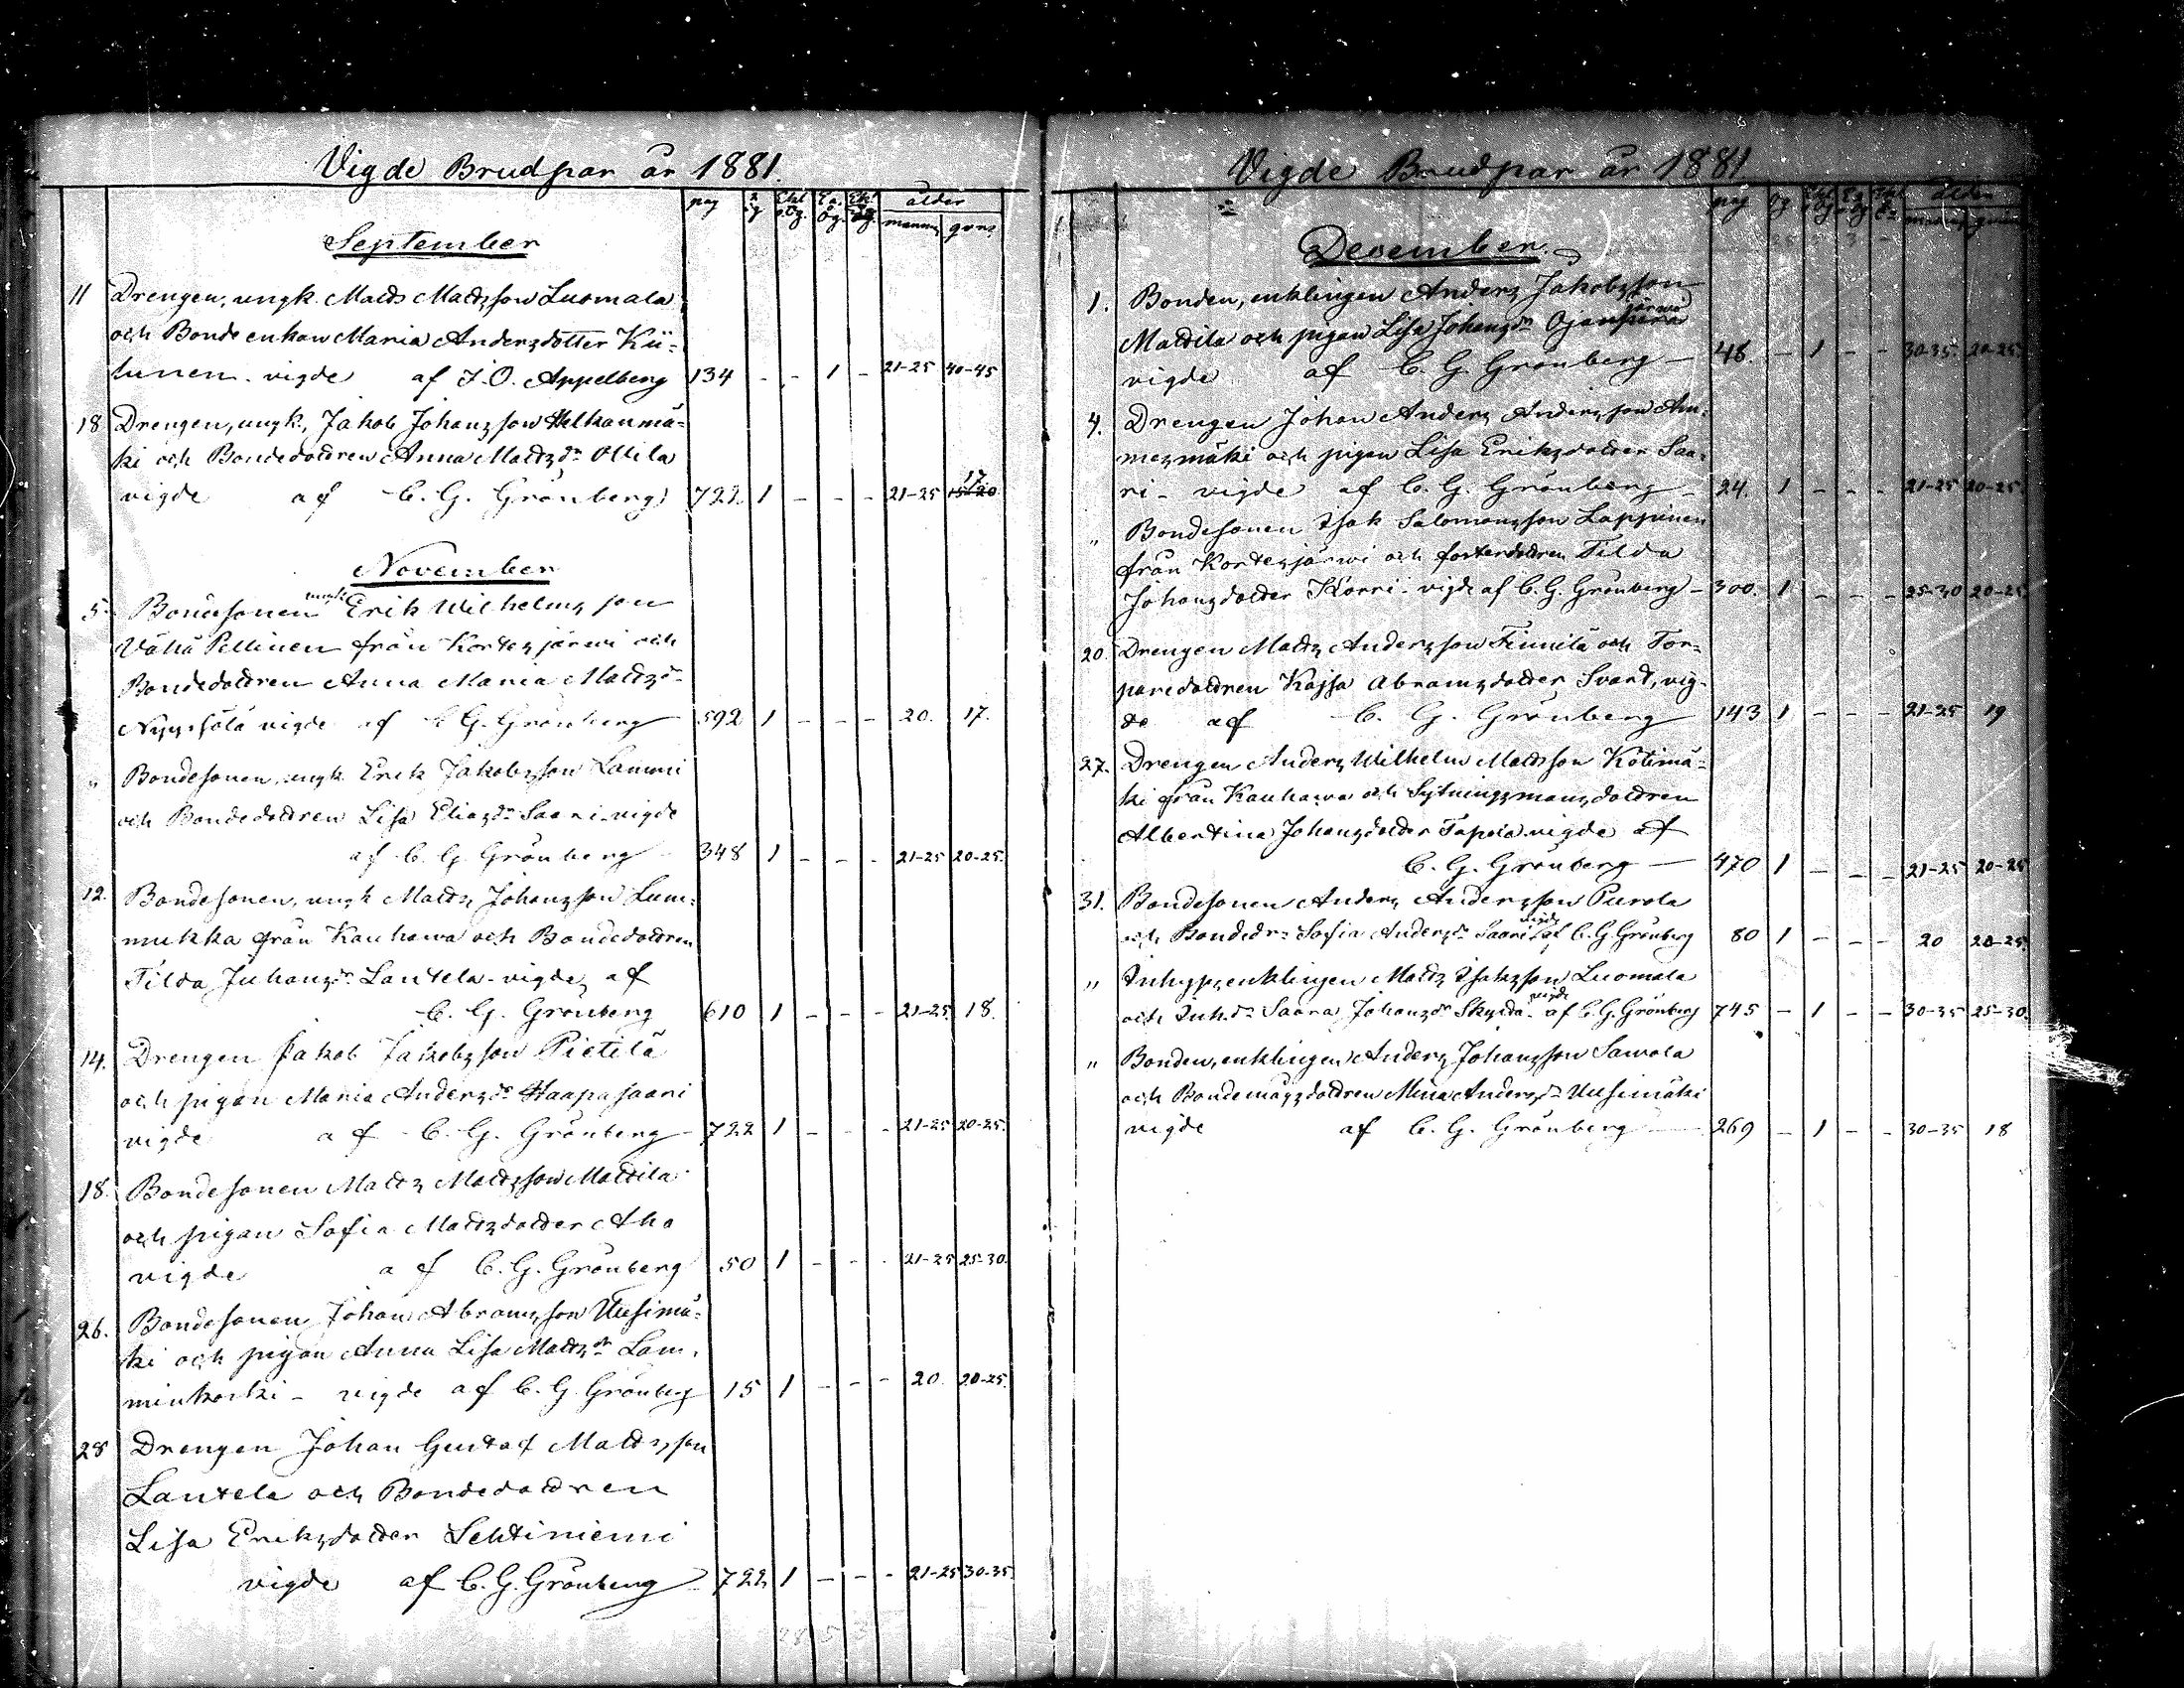 Vigde Brudpar år 1881.
pag ålder
mannens qvns
September
11 Drengen, ungk. Matts Mattsson Luomala
och Bondeenkan Maria Andersdotter Kii-
hinen vigde af J. O. Appelberg 134 - - 1 - 21-25 40-45
18 Drengen, ungk., Jakob Johansson Helkanmä-
ki och Bondedottren Anna Mattsdr Ollila
vigde af C. G. Grönberg 722. 1 - - - 21-25 17
November
5. Bondesonen ungk. Erik Wilhelmsson
Vähä Pellinen från Kortesjärvi och
Bondedottren Anna Maria Mattsdr
vigde af C. G. Grönberg 592 1 - - - 20. 17.
" Bondesonen, ungk. Erik Jakobsson Lammi
och Bondedottren Lisa Eliasdr Saari vigde
af C. G. Grönberg 348 1 - - - 21-25 20-25.
12. Bondesonen, ungk Matts Johansson Lum-
mukka från Kauhava och Bondedottren
Tilda Juhansdr Lantela - vigde, af
C. G. Grönberg 610 1 - - - 21-25. 18.
14. Drengen Jakob Jakobsson Pietilä
och pigan Maria Andersdr Haapasaari
vigde af C. G. Grönberg 722 1 - - - 21-25 20-25.
18. Bondesonen Matts Mattsson Mattila
och pigan Sofia Mattsdotter Aho
vigde af C. G. Grönberg 50 1 - - - 21-25 25-30.
26. Bondesonen Johan Abramsson Uusimä-
ki och pigan Anna Lisa Mattsdr Lam-
minkoski - vigde af C. G. Grönberg 15 1 - - - 20. 20-25.
28 Drengen Johan Gustaf Mattsson
Lantela och Bondedottren
Lisa Eriksdotter Lehtiniemi
vigde af C. G. Grönberg 722 1 - - - 21-25 30-35.
Vigde Brudpar år 1881
pag ålder
December.
1. Bonden, enklingen Anders Jakobsson
Mattila och pigan Lisa Johansdr Ojanjärvi
vigde af C. G. Grönberg - 48. - 1 - - 30-35. 20-25.
4. Drengen Johan Anders Andersson Am-
mesmäki och pigan Lisa Eriksdotter Saa-
ri - vigde af C. G. Grönberg - 24. 1 - - - 21-25 20-25.
" Bondesonen Isak Salomonsson Lappinen
från Kortesjärvi och fosterdottren Tilda
Johansdotter Korri - vigde af C. G. Grönberg - 300. 1 - - - 25-30 20-25
20. Drengen Matts Andersson Finnilä och Tor-
paredottren Kajsa Abramsdotter Svart, vig-
de af C. G. Grönberg 143 1 - - - 21-25 19
27. Drengen Anders Wilhelm Mattsson Kotimä-
ki från Kauhava och Sytningsmansdottren
Albertina Johansdotter Tapola vigde af
C. G. Grönberg - 470 1 - - - 21-25 20-25
31. Bondesonen Anders Andersson Purola
och Bondedr Sofia Andersdr Saari vigde af C. G. Grönberg 80 1 - - - 20 20-25.
" Inhys, enklingen Matts Isaksson Luomala
och Inh.dr Saara Johansdr Skytta - vigde af C. G. Grönberg 745 - 1 - - 30-35 25-30.
" Bonden, enklingen Anders Johansson Sawola
och Bondemågsdottren Mina Andersdr Uusimäki
vigde af C. G. Grönberg 269 - 1 - - 30-35 18